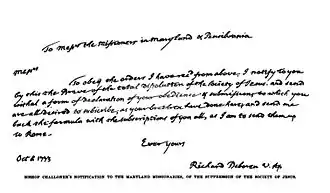 To messrs the missioners in Maryland & Pensilvania
Messrs
To obey the orders I have recd from above, I notify to you
by this the Breve of the total dissolution of the Society of Jesus: and send
withal a form of declaration of your obedience & submission, to which you
are all desired to subscribe, as your brethren have done here; and send me
back the formula with the subscriptions of you all, as I am to send them up
to Rome.
Ever Yours
Richard Deboren V. Ap.
Oct 6 1773
BISHOP CHALLONER'S NOTIFICATION TO THE MARYLAND MISSIONARIES, OF THE SUPPRESSION OF THE SOCIETY OF JESUS.